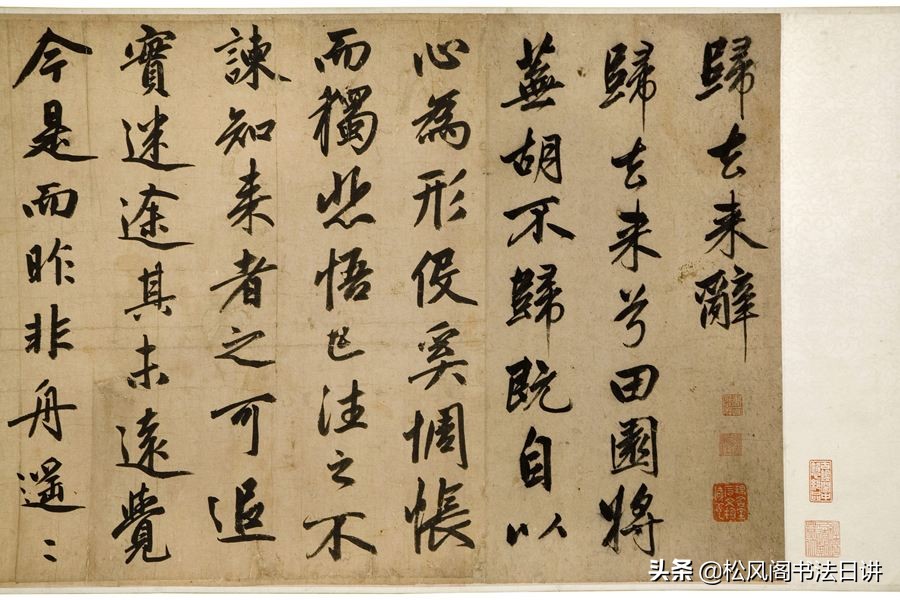 歸去来辭
歸去来兮田園將
蕪胡不歸既自以
心為形役奚惆悵
而獨悲悟已往之不
諫知来者之可追
實迷途其未遠覺
今是而昨非舟遥〻
头条 @松风阁书法日讲